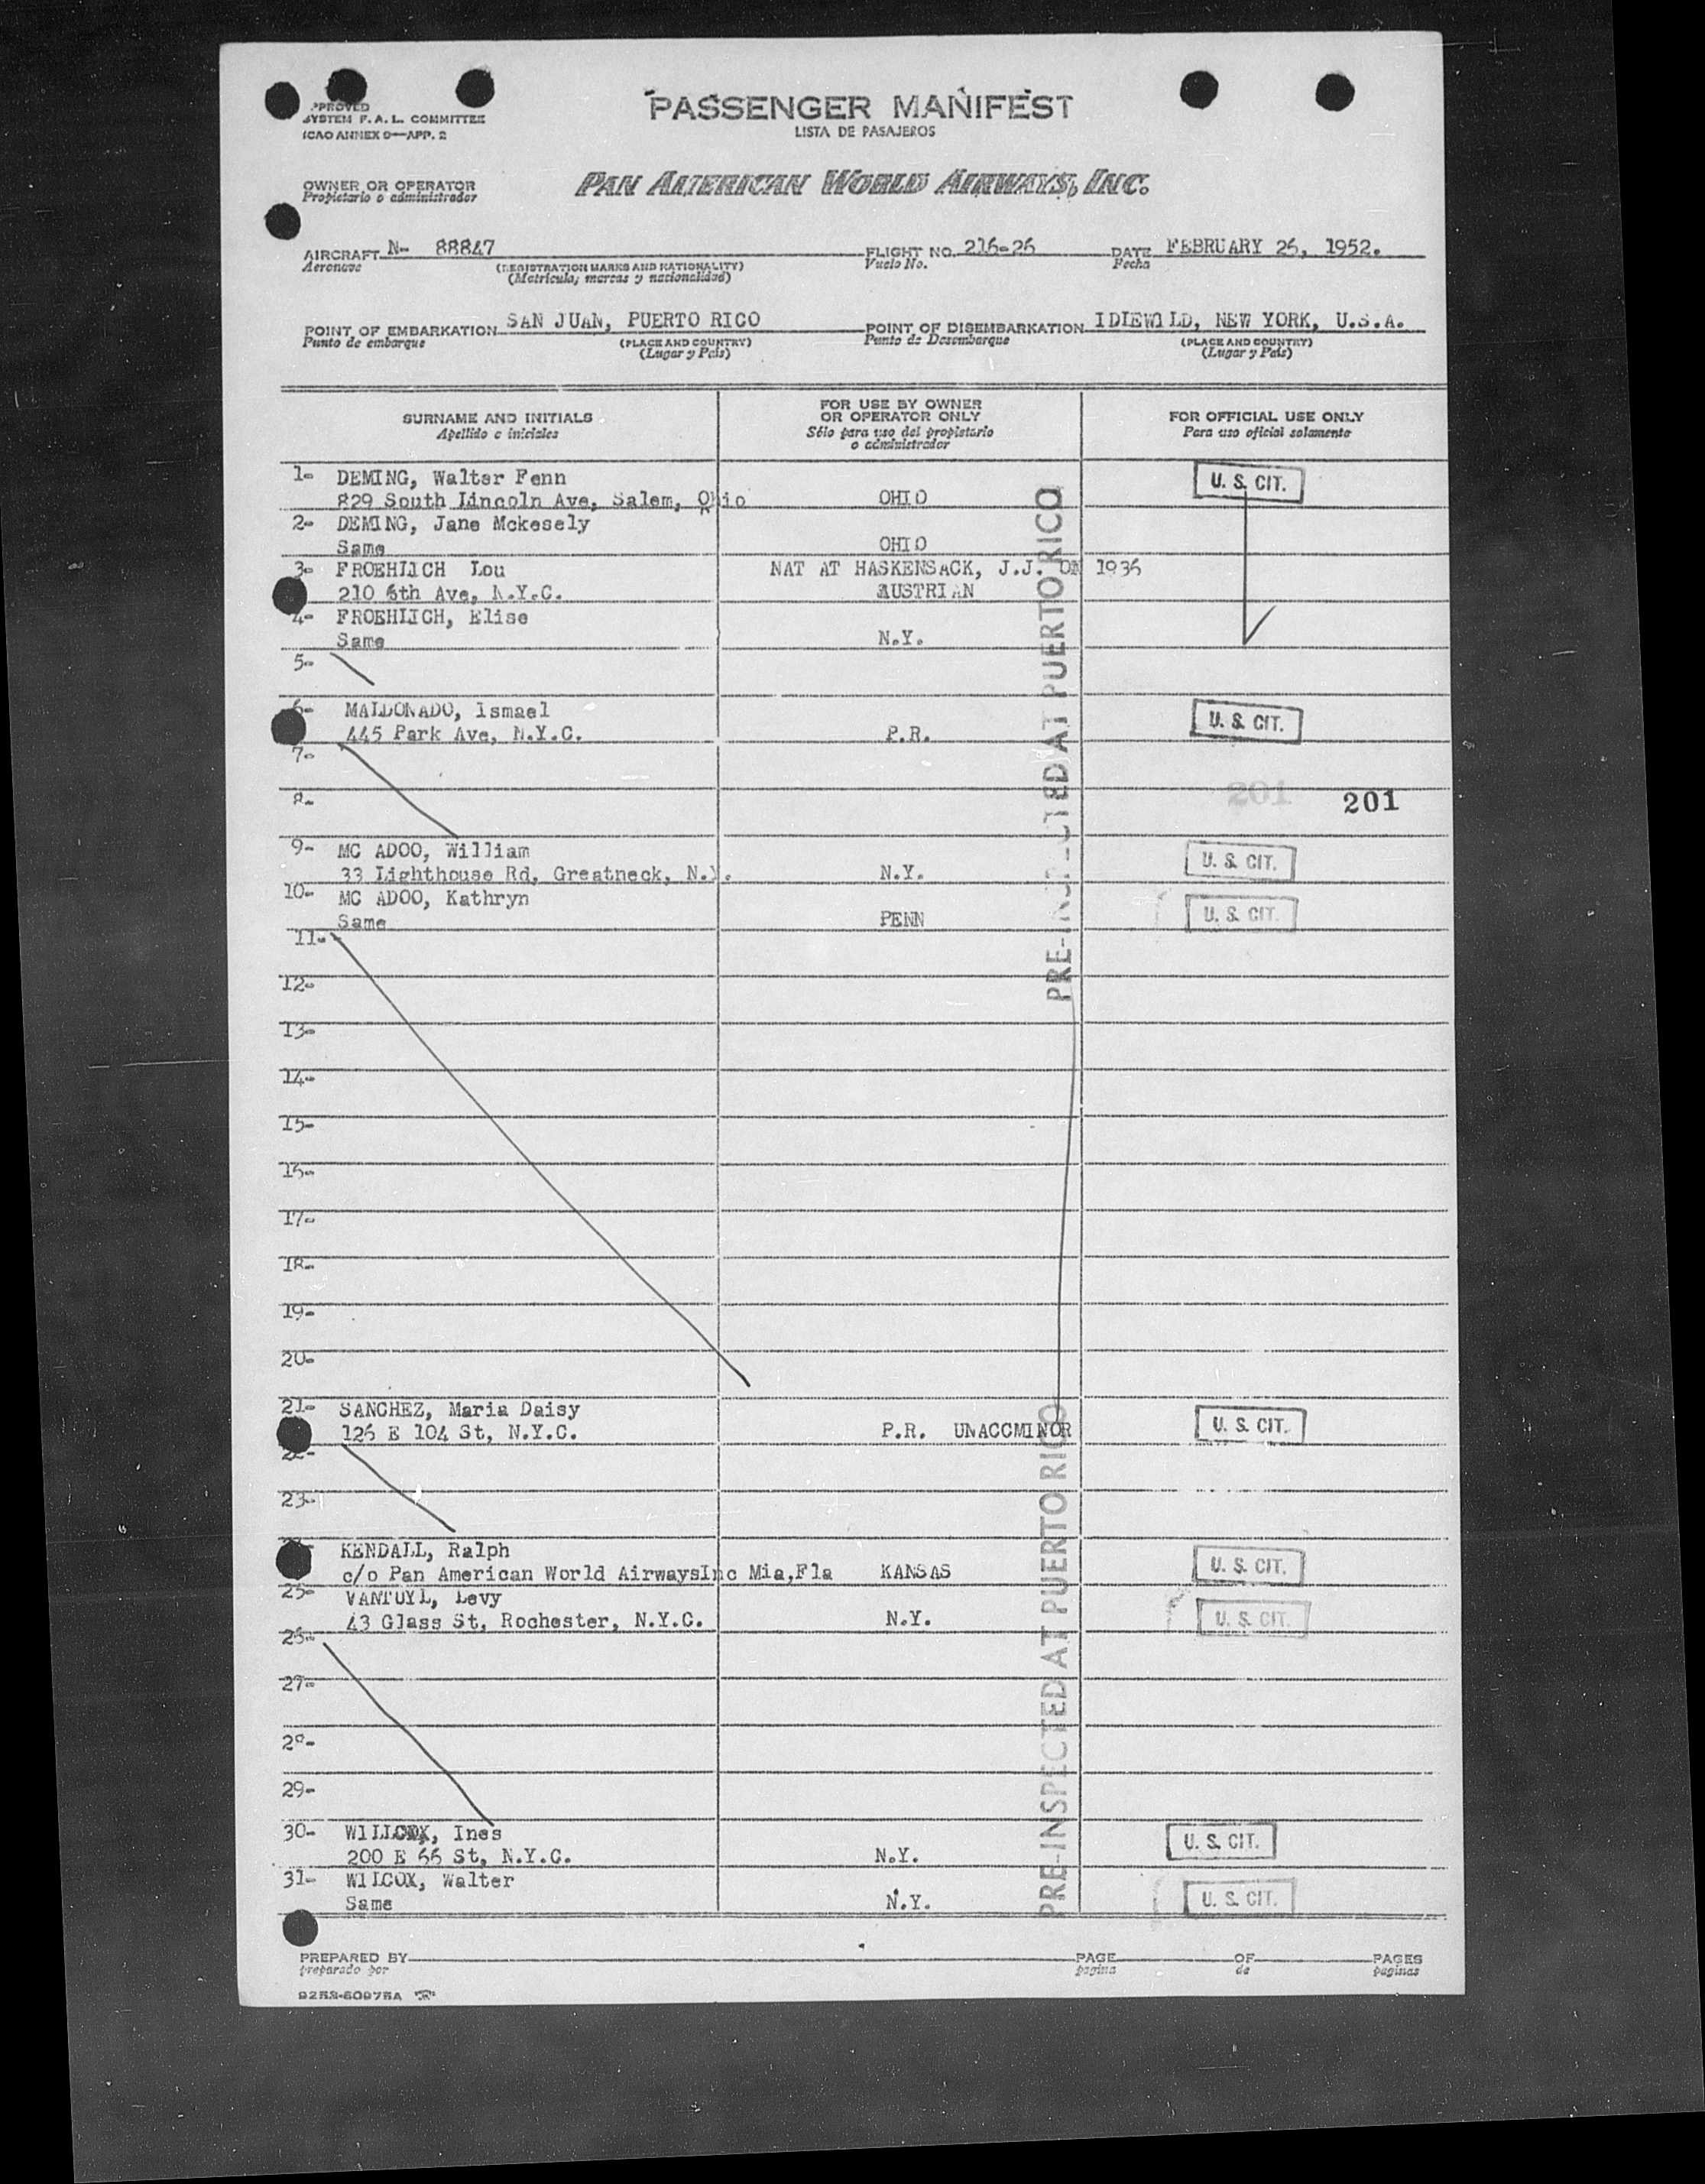 APPROVED
SYSTEM F. A. L. COMMITTEE
ICAO ANNEX 9—APP. 2
PASSENGER MANIFEST
LISTA DE PASAJEROS
OWNER OR OPERATOR
Propietario o administrador
PAN AMERICAN WORLD AIRWAYS, INC.
AIRCRAFT N- 88847 FLIGHT NO. 216-26 DATE FEBRUARY 26, 1952.
Aeronave (REGISTRATION MARKS AND NATIONALITY) Vuelo No. Fecha
(Matricula, marcas y nacionalidad)
POINT OF EMBARKATION SAN JUAN, PUERTO RICO POINT OF DISEMBARKATION IDLEWILD, NEW YORK, U.S.A.
Punto de embarque (PLACE AND COUNTRY) Punto de Desembarque (PLACE AND COUNTRY)
(Lugar y Pais) (Lugar y Pais)
SURNAME AND INITIALS FOR USE BY OWNER OR OPERATOR ONLY FOR OFFICIAL USE ONLY
Apellido e iniciales Sólo para uso del propietario o administrador Para uso oficial solamente
1- DEMING, Walter Fenn U. S. CIT.
829 South Lincoln Ave, Salem, Ohio OHIO
2- DEMING, Jane Mckesely
Same OHIO
3- FROEHLICH Lou NAT AT HASKENSACK, J.J. ON 1936
210 6th Ave, N.Y.C. AUSTRIAN
4- FROEHLICH, Elise
Same N.Y.
5-
6- MALDONADO, Ismael U. S. CIT.
445 Park Ave, N.Y.C. P.R.
7-
8- 201 201
9- MC ADOO, William U. S. CIT.
33 Lighthouse Rd, Greatneck, N.Y. N.Y.
10- MC ADOO, Kathryn U. S. CIT.
Same PENN
11-
PRE-INSPECTED AT PUERTO RICO
12-
13-
14-
15-
16-
17-
18-
19-
20-
21- SANCHEZ, Maria Daisy U. S. CIT.
126 E 104 St, N.Y.C. P.R. UNACCMINOR
22-
23-
KENDALL, Ralph U. S. CIT.
c/o Pan American World AirwaysInc Mia,Fla KANSAS
25- VANTUYL, Levy U. S. CIT.
43 Glass St, Rochester, N.Y.C. N.Y.
26-
27-
28-
29-
30- WILLCOX, Ines U. S. CIT.
200 E 66 St, N.Y.C. N.Y.
31- WILCOX, Walter U. S. CIT.
Same N.Y.
PRE-INSPECTED AT PUERTO RICO
PREPARED BY PAGE OF PAGES
preparado por pagina de paginas